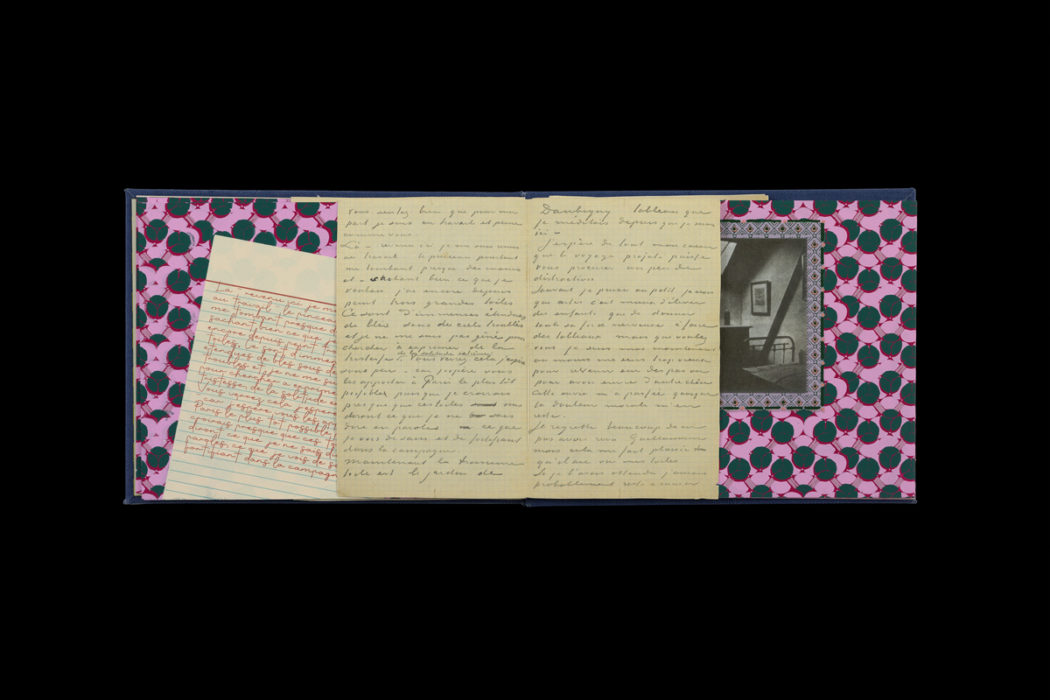 La revenu ici je me
au travail le pinceau
me tombant presque d
sachant bien ce que
encore depuis peint
toiles. Ce sont d'immen
étendues de blés sous de
troublés et je ne me sui
pour chercher à exprimer
tristesse, de la solitude
Vous verrez cela j'espère
Paris le plus tôt possible
croirais presque que ces t
diront ce que je ne sais
paroles, ce que je vois de s
fortifiant dans la campagn
vous sentez bien que pour ma
part je suis
Là – revenu ici je me suis remis
au travail – le pinceau pourtant
me tombant presque des mains
et – sachant bien ce que je
voulais j'ai encore depuis
peint trois grandes toiles
Ce sont d'immenses étendues
de blés sous des ciels troublés
et je ne me suis pas gêné pour
chercher à exprimer de la
tristesse, de la solitude extrême
Vous verrez cela j'espère
sous peu – car j'espère
vous les apporter à Paris le plus tôt
possible puisque je croirais
presque que ces toiles vous
diront ce que je ne sais
dire en paroles ce que
je vois de sain et de fortifiant
dans la campagne.
Maintenant la troisième
toile est le jardin de
Daubigny tableau que
je méditais depuis que je suis
ici –
J'espère de tout mon cœur
que le voyage projeté puisse
vous procurer un peu de
distraction.
Souvent je pense au petit je crois
que certes c'est mieux d'élever
des enfants que de donner
toute sa force nerveuse à faire
des tableaux mais que voulez
vous je suis moi maintenant
au moins me sens trop vieux
pour revenir sur des pas ou
pour avoir envie d'autre chose
Cette envie m'a passée quoique
la douleur morale m'en
reste.
Je regrette beaucoup de ne
pas avoir revu Guillaumin
mais cela me fait plaisir
qu'il aie vu mes toiles
Si je l'avais attendu j'aurais
probablement resté à causer